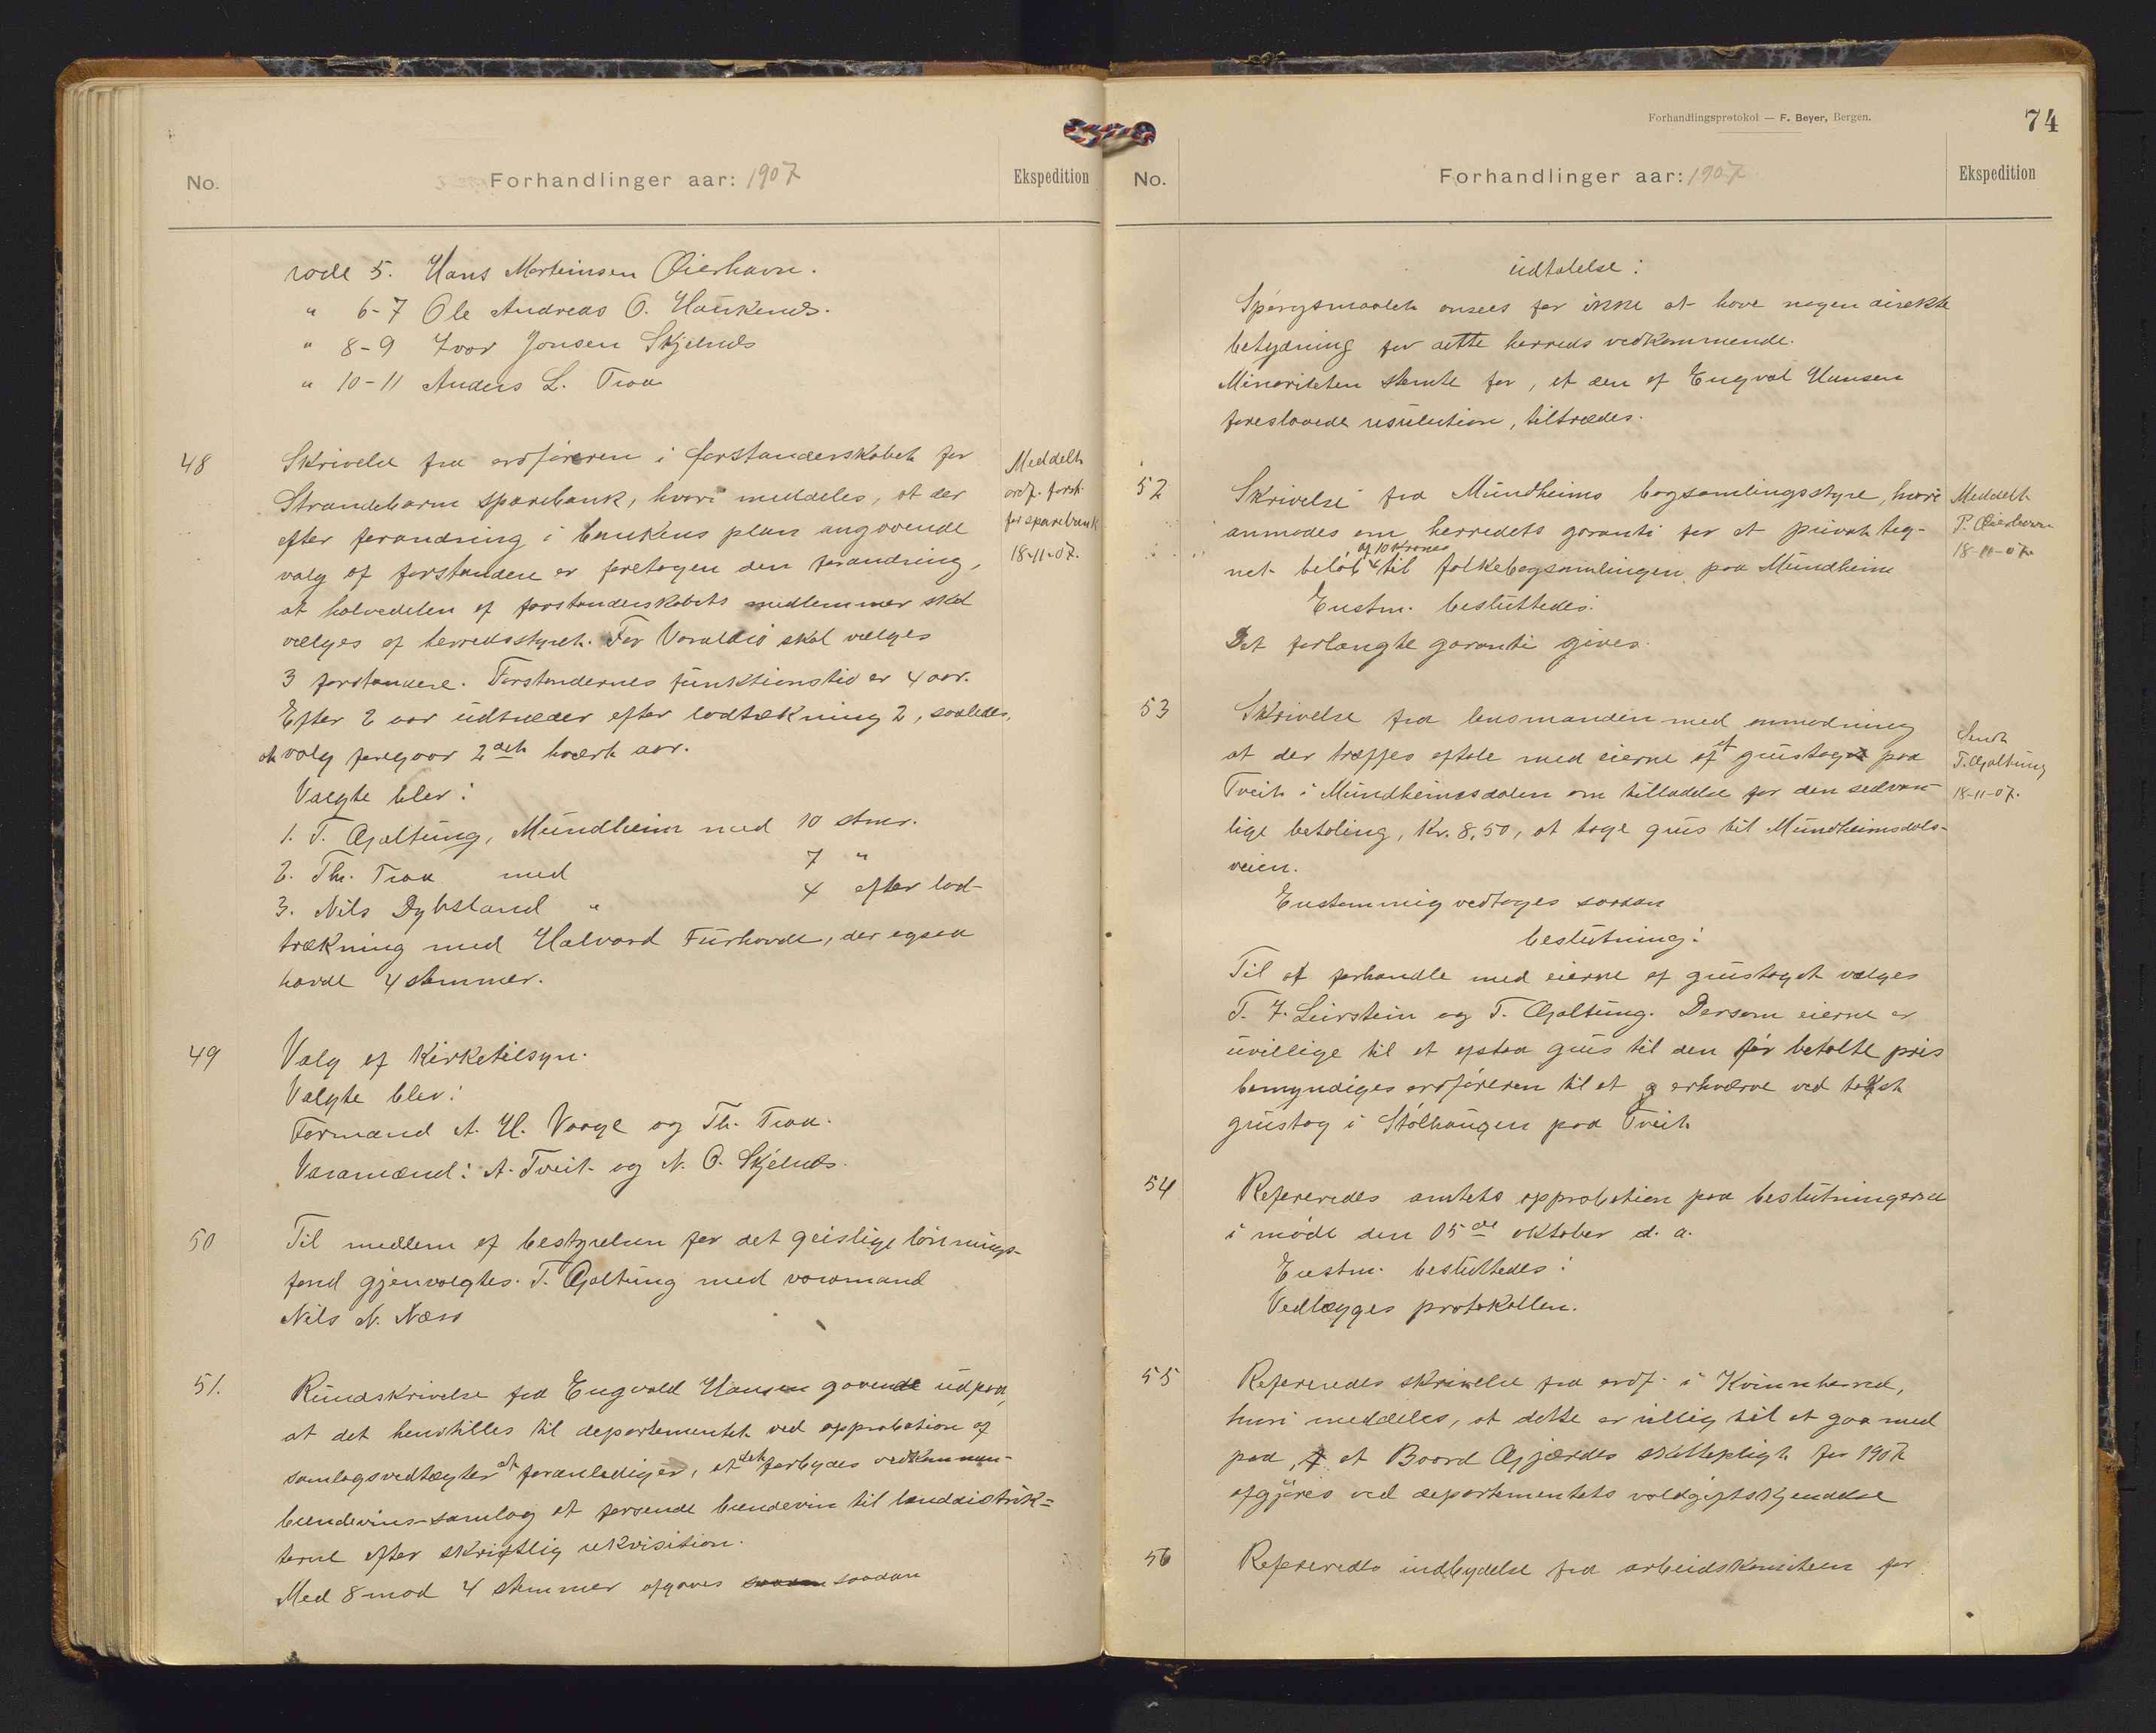 No.
Forhandlinger aar: 1907
Ekspedition
rode 5. Hans Marteinsen Øierhavn.
" 6-7 Ole Andreas O. Haukenæs.
" 8-9 Ivar Jonsen Skjelnæs
" 10-11 Anders L. Traa
48
Skrivelse fra ordføreren i forstanderskabet for
Strandebarm sparebank, hvori meddeles, at der
efter forandring i bankens plan angaaende
valg af forstandere er foretagen den forandring,
at halvedelen af forstanderskabets medlemmer skal
vælges af herredsstyret. For Varaldsø skal vælges
3 forstandere. Forstandernes funktionstid er 4 aar.
Efter 2 aar udtræder efter lodtrækning 2, saaledes,
at valg foregaar 2det hvert aar.
Valgte blev:
1. T. Gjaltung, Mundheim med 10 stmr.
2. Th. Traa med 7 "
3. Nils Dybsland " 4 efter lod-
trækning med Halvard Furhovde, der ogsaa
havde 4 stemmer.
Meddelt
ordf. forst.
for sparebank
18-11-07.
49
Valg af Kirketilsyn.
Valgte blev:
Formænd A. H. Vaage og Th. Traa.
Varamænd: A. Tveit og N. O. Skjelnæs.
50
Til medlem af bestyrelsen for det geistlige lönnings-
fond gjenvalgtes T. Gjaltung med varamand
Nils N. Næss
51.
Rundskrivelse fra Engvald Hansen gaaende ud paa,
at det henstilles til departementet ved approbation af
samlagsvedtægter at foranlediger, at det forbydes vedkommen-
brændevins-samlag at forsende brændevin til landdistrik=
terne efter skriftlig rekvisition.
Med 8 mod 4 stemmer afgaves saadan saadan
Forhandlingsprotokol — F. Beyer, Bergen.
74
No.
Forhandlinger aar: 1907
Ekspedition
udtalelse:
Spørgsmaalet ansees for ikke at have nogen direkte
betydning for dette herreds vedkommende.
Minoriteten stemte for, at den af Engval Hansen
foreslaaede resulution, tiltrædes.
52
Skrivelse fra Mundheims bogsamlingsstyre, hvori
anmodes om herredets garanti for et privat teg-
net beløb af 10 Kroner til folkebogsamlingen paa Mundheim
Enstm. besluttedes:
Det forlangte garanti gives.
Meddelt
P. Øierhavn
18-11-07
53
Skrivelse fra lensmanden med anmodning
at der træffes aftale med eierne af et grustag paa
Tveit i Mundheimsdalen om tilladelse for den sedvan-
lige betaling, Kr. 8,50, at tage grus til Mundheimsdals-
veien.
Enstemmig vedtoges saadan
beslutning:
Til at forhandle med eierne af grustaget vælges
T. J. Leirstein og T. Gjaltung. Dersom eierne er
uvillige til at afstaa grus til den før betalte pris
bemyndiges ordføreren til at erhværve ved takst
grustag i Stølhaugen paa Tveit
Sendt
T. Gjaltung
18-11-07.
54
Refereredes amtets approbation paa beslutningerne
i møde den 15de oktober d. a.
Enstm. besluttedes:
Vedlægges protokollen.
55
Refereredes skrivelse fra ordf. i Kvinnherred,
hvori meddeles, at dette er villig til at gaa med
paa, at Baard Gjærdes skattepligt for 1907
afgjøres ved departementets voldgiftskjendelse
56
Refereredes indbydelse fra arbeidskomiteen for